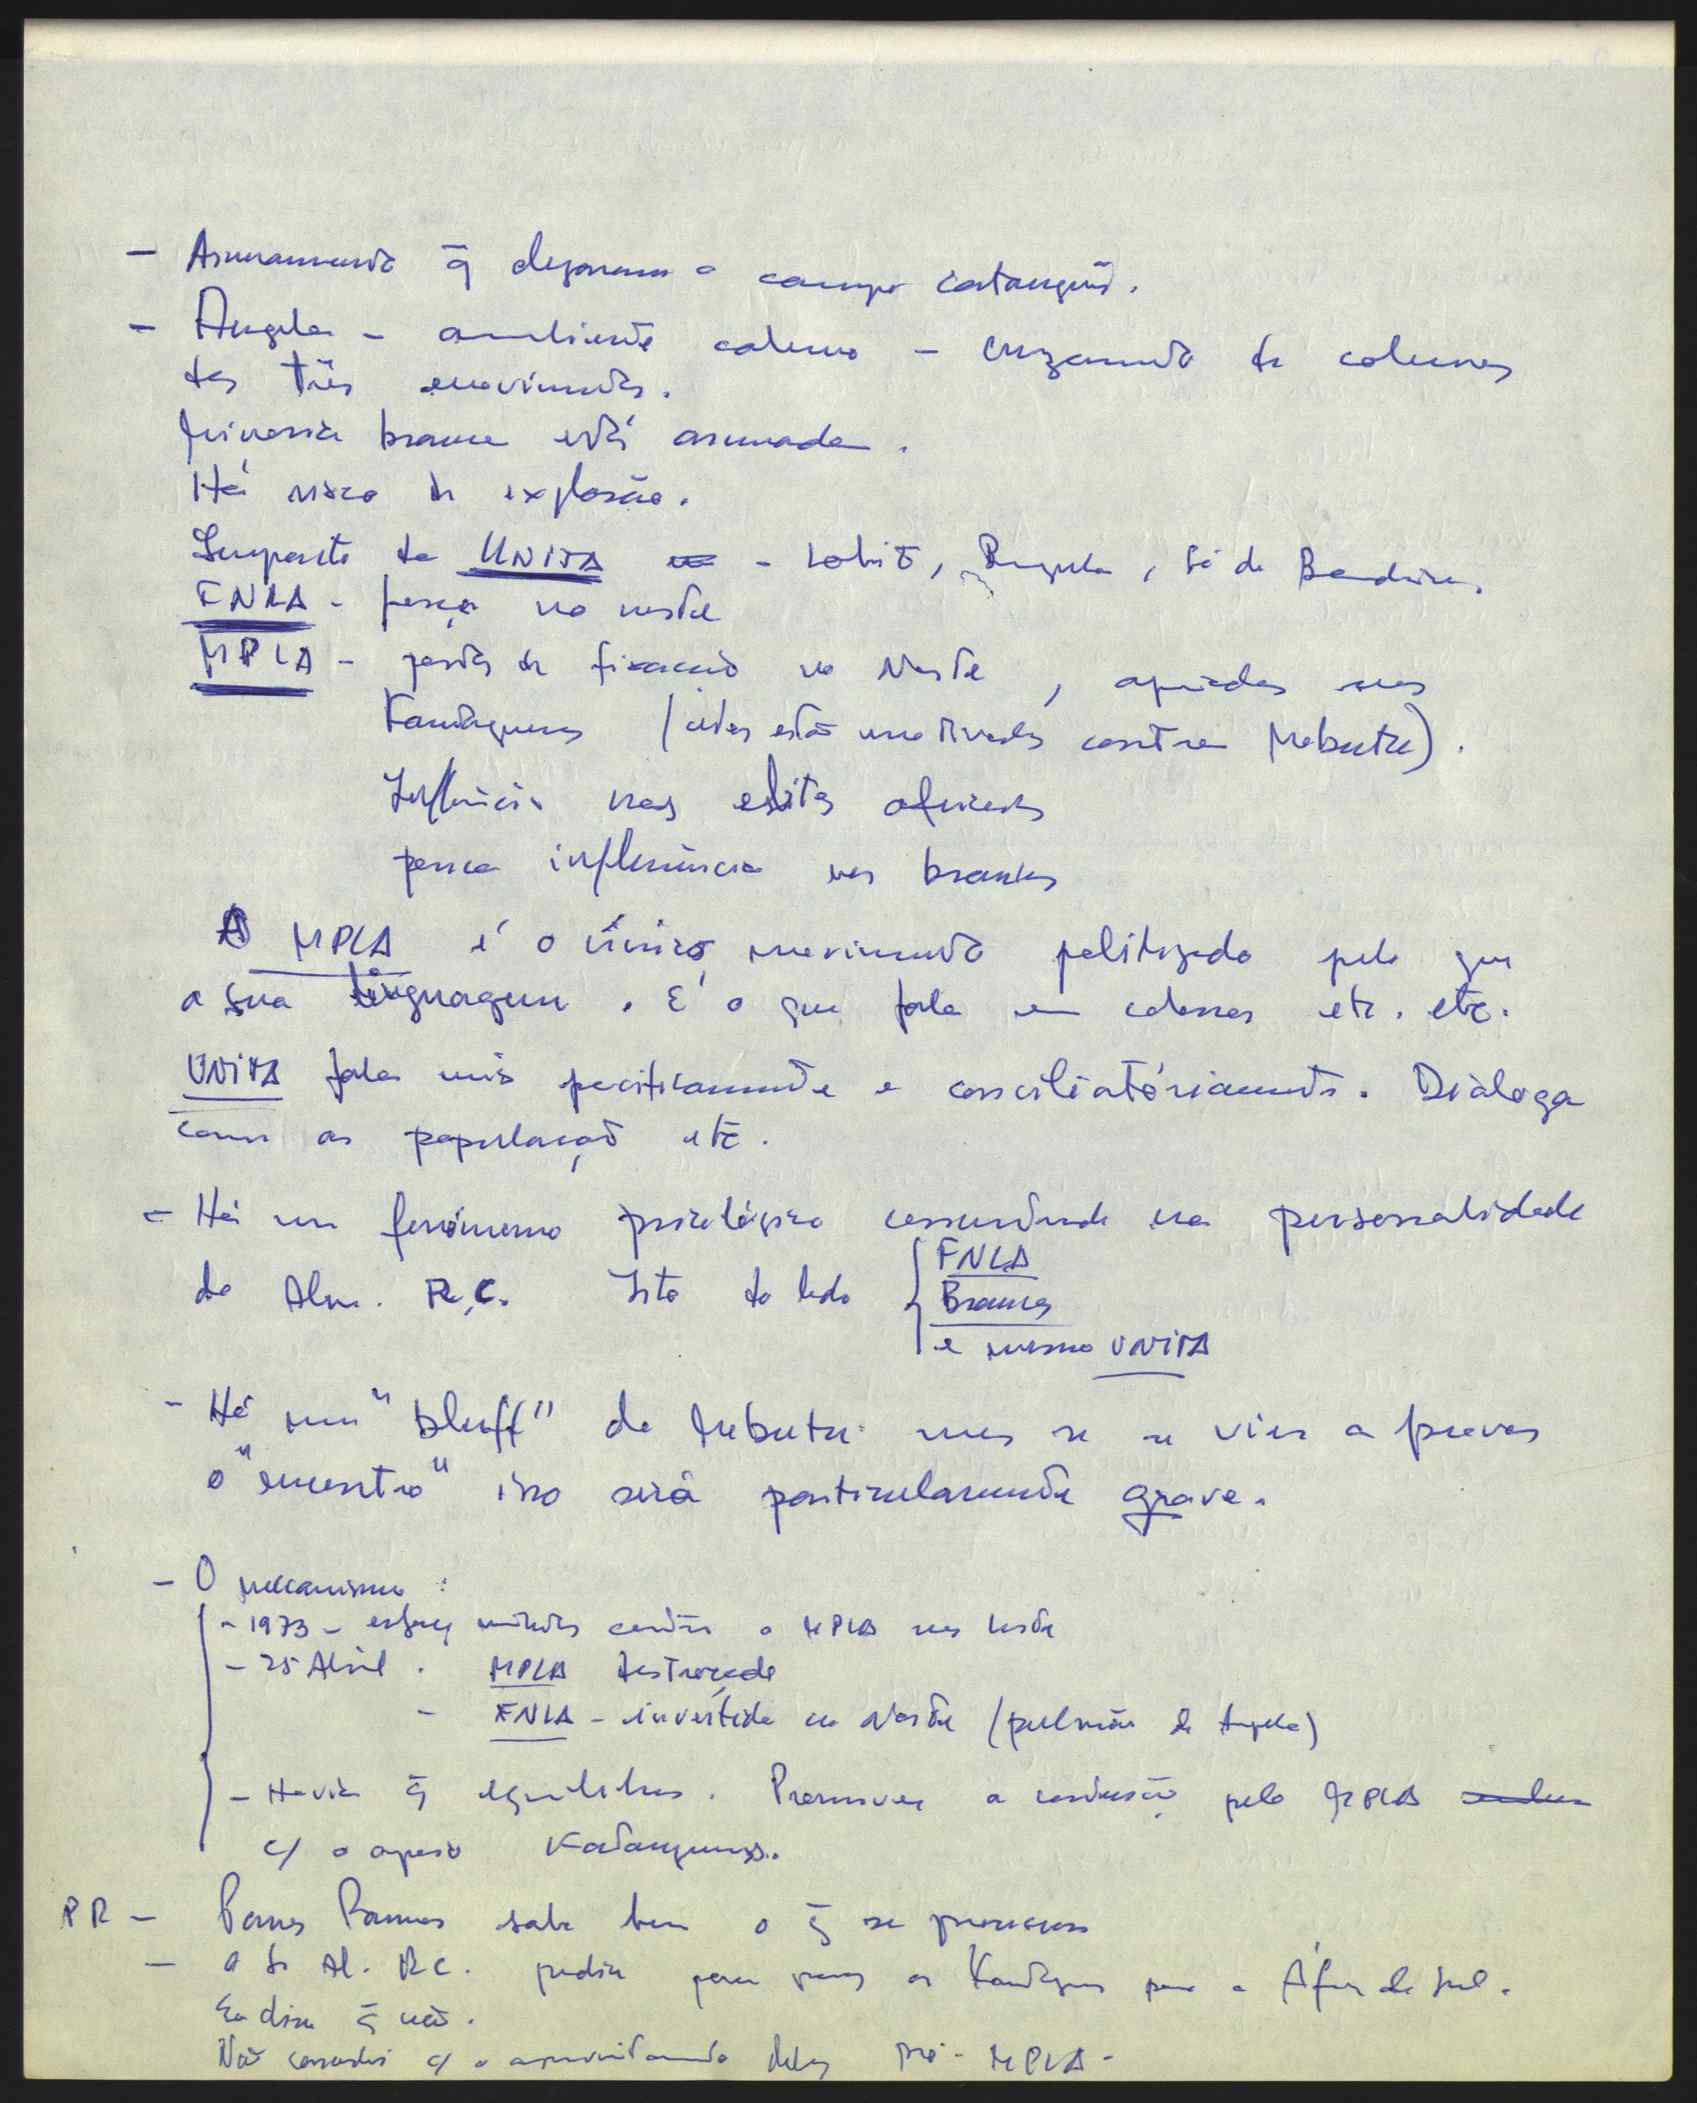 - Armamento q̄ chegaram o campo catanguês.
- Angola - ambiente calmo - cruzamento de colunas
das três movimentos.
Minoria branca está armada.
Há risco de explosão.
Simpatia da UNITA - Lobito, Benguela, Sá da Bandeira.
FNLA - força no norte
MPLA - pontos de fixação no Norte, apoiados nos
Kantagueses (estes estão motivados contra Mobutu).
Influência nas elites africanas
pouca influência nos brancos
O MPLA é o único movimento politizado pelo que
a sua linguagem. É o que fala em classes etc. etc.
UNITA fala mais pacificamente e conciliatóriamente. Diáloga
com as população etc.
- Há um fenómeno psicológico concentrado na personalidade
do Alm. R.C. Isto do lado { FNLA
Brancos
e mesmo UNITA
- Há um "bluff" de Mobutu mas se se vier a provar
o "encontro" isso será particularmente grave.
- O mecanismo:
- 1973 - esforço militar contra o MPLA no Leste
- 25 Abril. MPLA destroçado
- FNLA - investida no Norte (pulmão de Angola)
- Havia q̄ equilibrar. Promover a pelo MPLA
c/ o apoio Katangueses.
PR - Pomes Ramos sabe bem o q̄ se
- O Sr Al. R.C. pediu para os para a África do Sul.
Eu disse q̄ não.
Não concordei c/ o aproveitamento deles pró-MPLA-